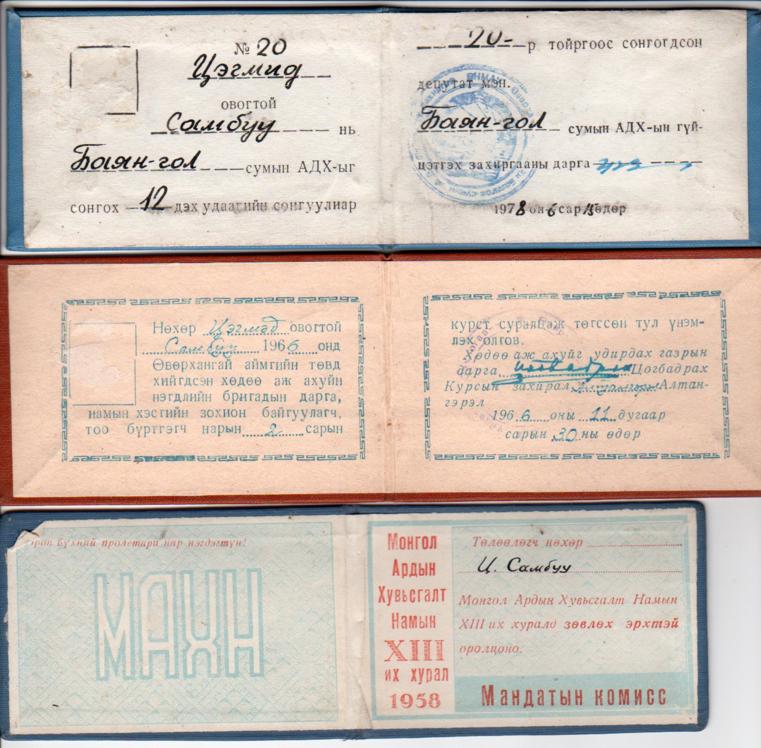 № 20
Цэгмид
овогтой
Самбуу нь
Баян-гол сумын АДХ-ыг
сонгох 12 дэх удаагийн сонгуулиар
20-р тойргоос сонгогдсон
депутат мөн.
Баян-гол сумын АДХ-ын гүй-
цэтгэх захиргааны дарга
1978 он 6 сар 15 өдөр
Нөхөр Цэгмэд овогтой
Самбуу 1966 онд
Өвөрхангай аймгийн төвд
хийгдсэн хөдөө аж ахуйн
нэгдлийн бригадын дарга,
намын хэсгийн зохион байгуулагч,
тоо бүртгэгч нарын 2 сарын
курст суралцаж төгссөн тул үнэм-
лэх олгов.
Хөдөө аж ахуйг удирдах газрын
дарга Цогбадрах
Курсын захирал Алтан-
гэрэл
1966 оны 11 дугаар
сарын 30 ны өдөр
Орон бүхний пролетари нар нэгдэгтүн!
МАХН
Монгол
Ардын
Хувьсгалт
Намын
XIII
их хурал
1958
Төлөөлөгч нөхөр
Ц. Самбуу
Монгол Ардын Хувьсгалт Намын
XIII их хуралд зөвлөх эрхтэй
оролцоно.
Мандатын комисс